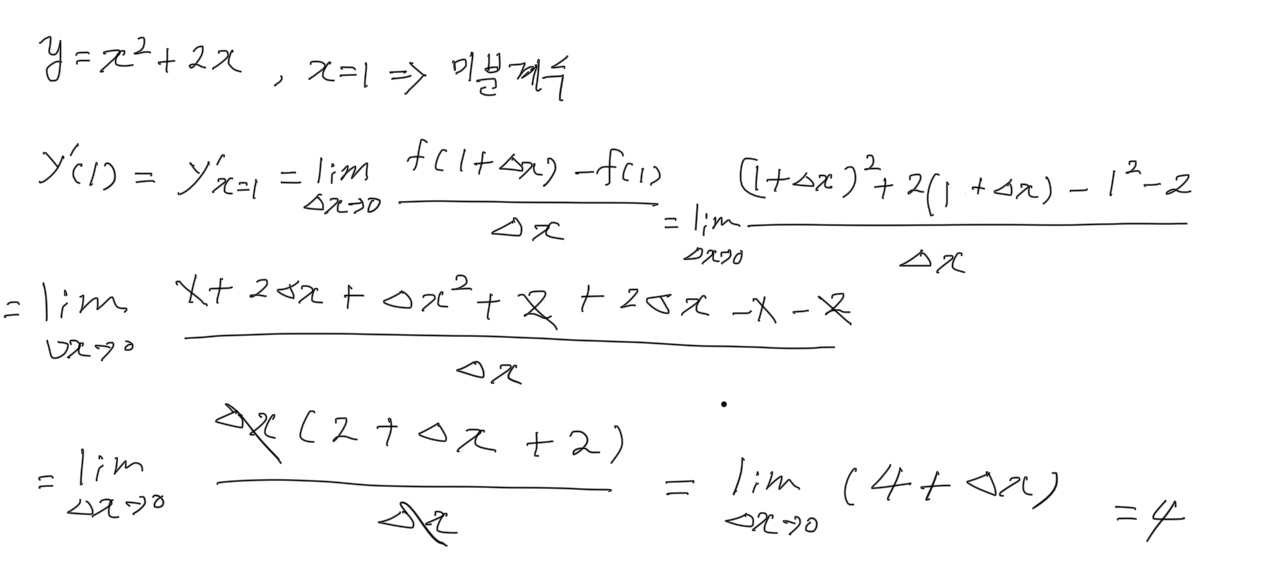 y = x² + 2x , x=1 => 미분계수
y'(1) = y'ₓ₌₁ = lim_{Δx→0} (f(1+Δx) - f(1)) / Δx = lim_{Δx→0} ((1+Δx)² + 2(1+Δx) - 1² - 2) / Δx
= lim_{Δx→0} (1 + 2Δx + Δx² + 2 + 2Δx - 1 - 2) / Δx
= lim_{Δx→0} Δx(2 + Δx + 2) / Δx = lim_{Δx→0} (4 + Δx) = 4